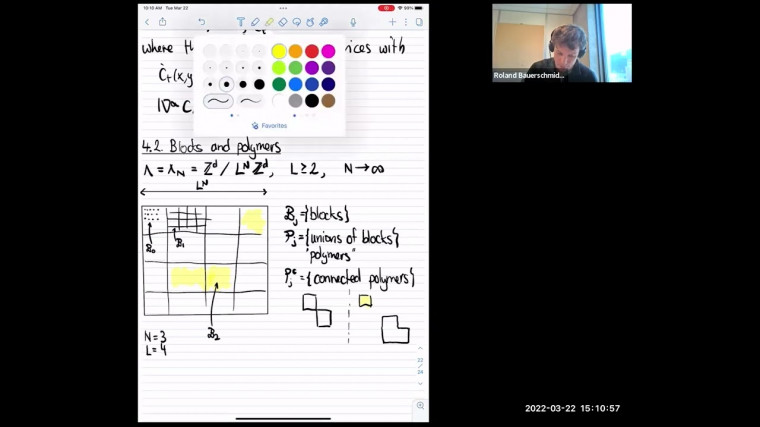 10:10 AM Tue Mar 22
59%
where th
ices with
Ċₜ(x,y
|∇^α C
Favorites
4.2. Blocks and polymers
Λ = Λ_N = ℤ^d / L^N ℤ^d, L ≥ 2, N → ∞
L^N
B_j = {blocks}
P_j = {unions of blocks}
"polymers"
P_j^c = {connected polymers}
B_0
B_1
B_2
N=3
L=4
22
/
24
Roland Bauerschmid...
2022-03-22 15:10:57